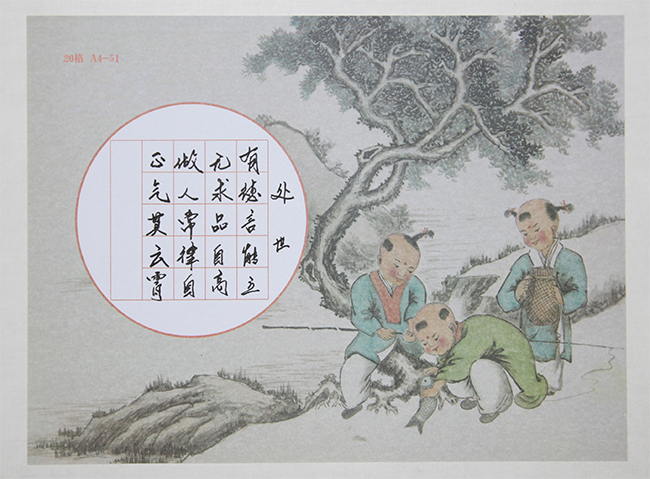 20格 A4-51
处世
有德言能立
无求品自高
做人常律自
正气贯云霄